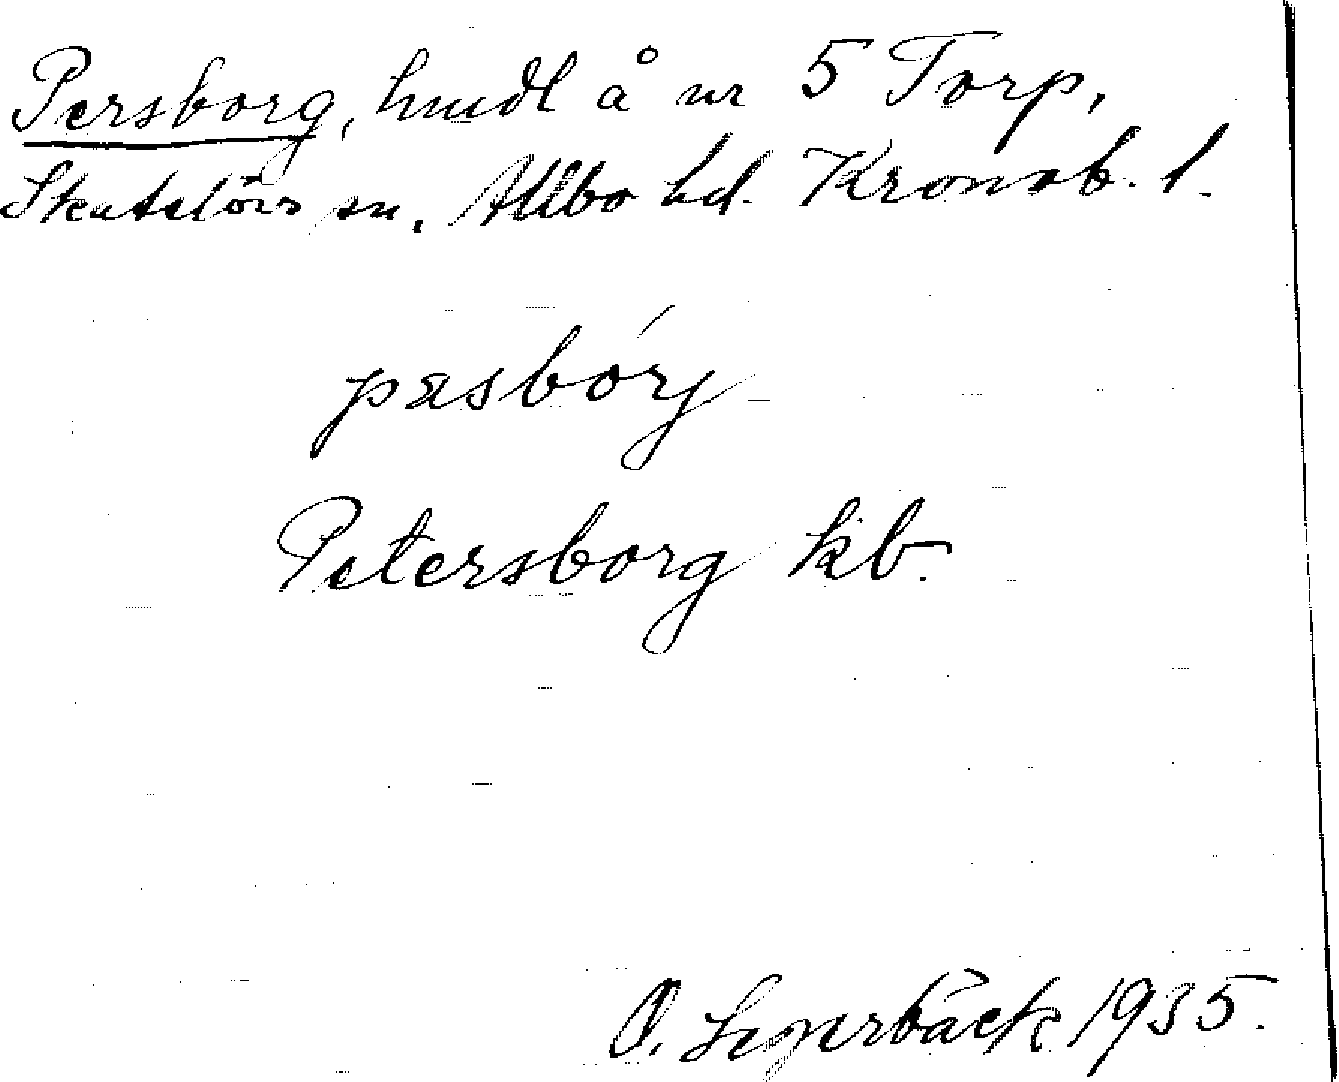 Persborg, hmdl å nr 5 Torp,
Skatelövs sn, Allbo hd. Kronob. l.
pæsbórj
Petersborg kb.
1935.